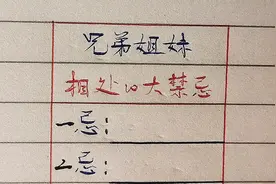 兄弟姐妹
相处10大禁忌
一忌:
二忌: